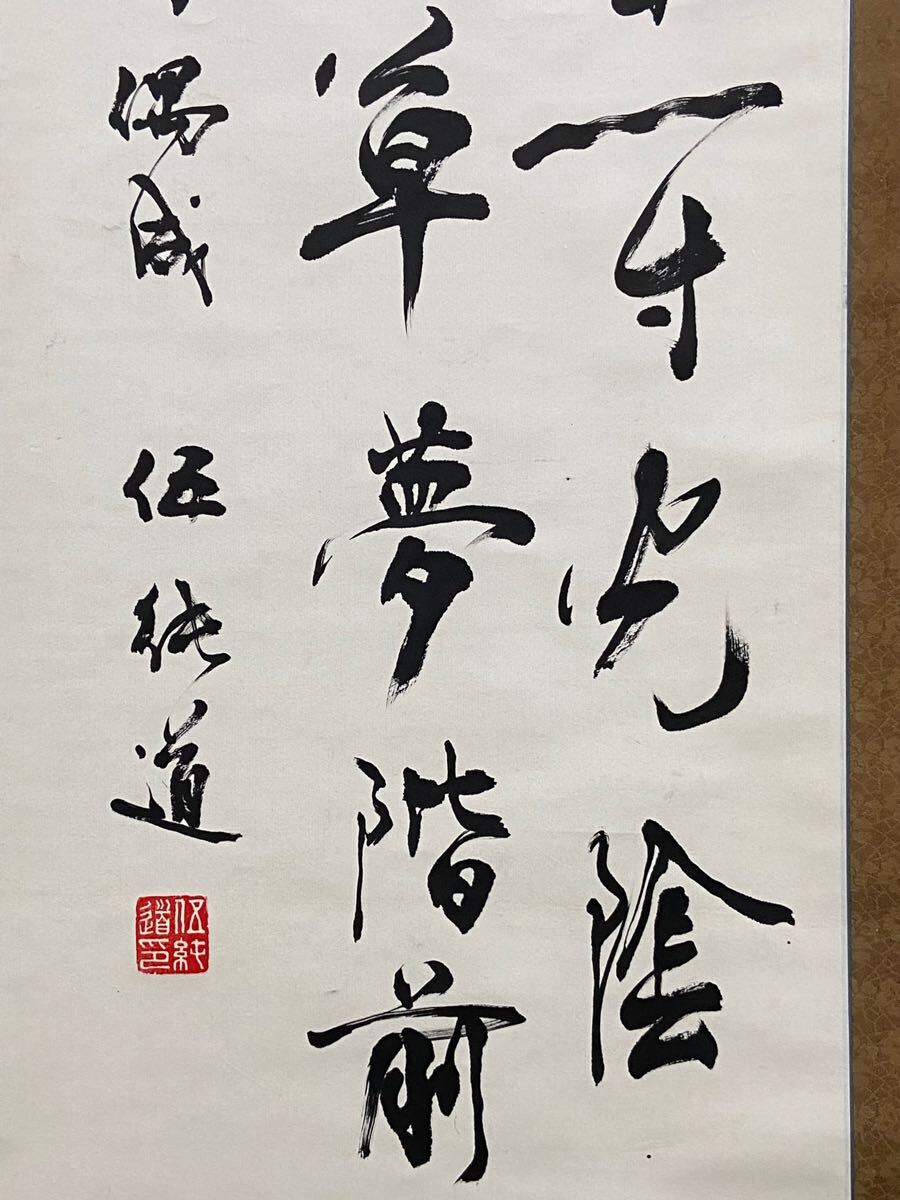 一寸光陰
草夢階前
偶成 伍純道
伍純
道印